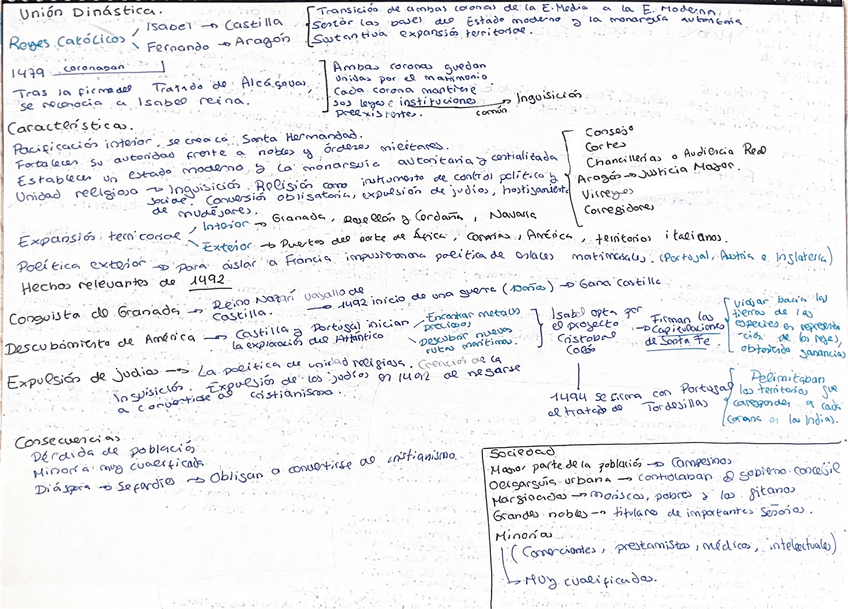 Unión Dinástica.
Reyes Católicos
Isabel → Castilla
Fernando → Aragón
Transición de ambas coronas de la E. Media a la E. Moderna.
Sentar las bases del Estado moderno y la monarquía autoritaria
Sustantiva expansión territorial.
1479 coronaban
Tras la firma del Tratado de Alcáçovas,
se reconocía a Isabel reina.
Ambas coronas quedan
unidas por el matrimonio
Cada corona mantiene
sus leyes e instituciones → Inquisición
preexistentes. común
Características.
Pacificación interior, se crea la Santa Hermandad.
Fortalecen su autoridad frente a nobles y órdenes militares.
Establecen un estado moderno y la monarquía autoritaria y centralizada
Unidad religiosa → Inquisición. Religión como instrumento de control político y
social. Conversión obligatoria, expulsión de judíos, hostigamiento
de mudéjares.
Consejo
Cortes
Chancillerías o Audiencia Real
Aragón → Justicia Mayor.
Virreyes
Corregidores
Expansión territorial
Interior → Granada, Rosellón y Cerdaña, Navarra
Exterior → Puertos del norte de África, Canarias, América, territorios italianos.
Política exterior → para aislar a Francia impusieron una política de enlaces matrimoniales. (Portugal, Austria e Inglaterra)
Hechos relevantes de 1492
Conquista de Granada → Reino Nazarí vasallo de
Castilla. → 1492 inicio de una guerra (10 años) → Gana Castilla
Descubrimiento de América → Castilla y Portugal inician
la exploración del Atlántico
Encontrar metales
preciosos
Descubrir nuevas
rutas marítimas.
Isabel opta por
el proyecto
Cristobal
Colón
Firman las
Capitulaciones
de Santa Fe
viajar hacia las
tierras de las
especies en representa
ción de los reyes,
obteniendo ganancias
Expulsión de judíos → La política de unidad religiosa. Creación de la
Inquisición. Expulsión de los judíos en 1492 al negarse
a convertirse al cristianismo.
1494 se firma con Portugal
el tratado de Tordesillas
Delimitaban
los territorios que
corresponden a cada
corona en las Indias.
Consecuencias
Pérdida de población
Minoría muy cualificada
Diáspora → Sefardíes → Obligan a convertirse al cristianismo.
Sociedad
Mayor parte de la población → Campesinos
Oligarquía urbana → controlaban el gobierno concejil
Marginados → moriscos, pobres y los gitanos
Grandes nobles → titulares de importantes señoríos.
Minoría
(Comerciantes, prestamistas, médicos, intelectuales)
→ Muy cualificados.